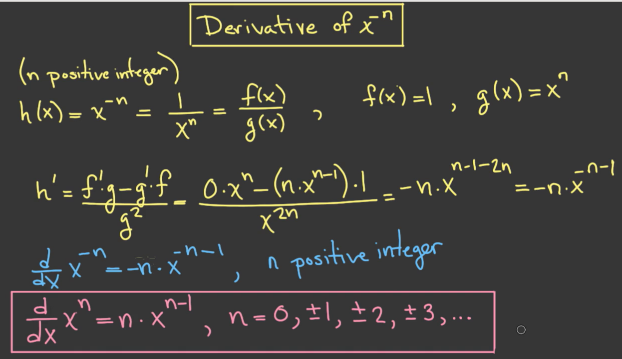 Derivative of x⁻ⁿ
(n positive integer)
h(x) = x⁻ⁿ = 1/xⁿ = f(x)/g(x) , f(x) = 1 , g(x) = xⁿ
h' = (f'·g – g'·f)/g² = (0·xⁿ – (n·xⁿ⁻¹)·1)/x²ⁿ = –n·xⁿ⁻¹⁻²ⁿ = –n·x⁻ⁿ⁻¹
d/dx x⁻ⁿ = –n·x⁻ⁿ⁻¹ , n positive integer
d/dx xⁿ = n·xⁿ⁻¹ , n = 0, ±1, ±2, ±3, ...